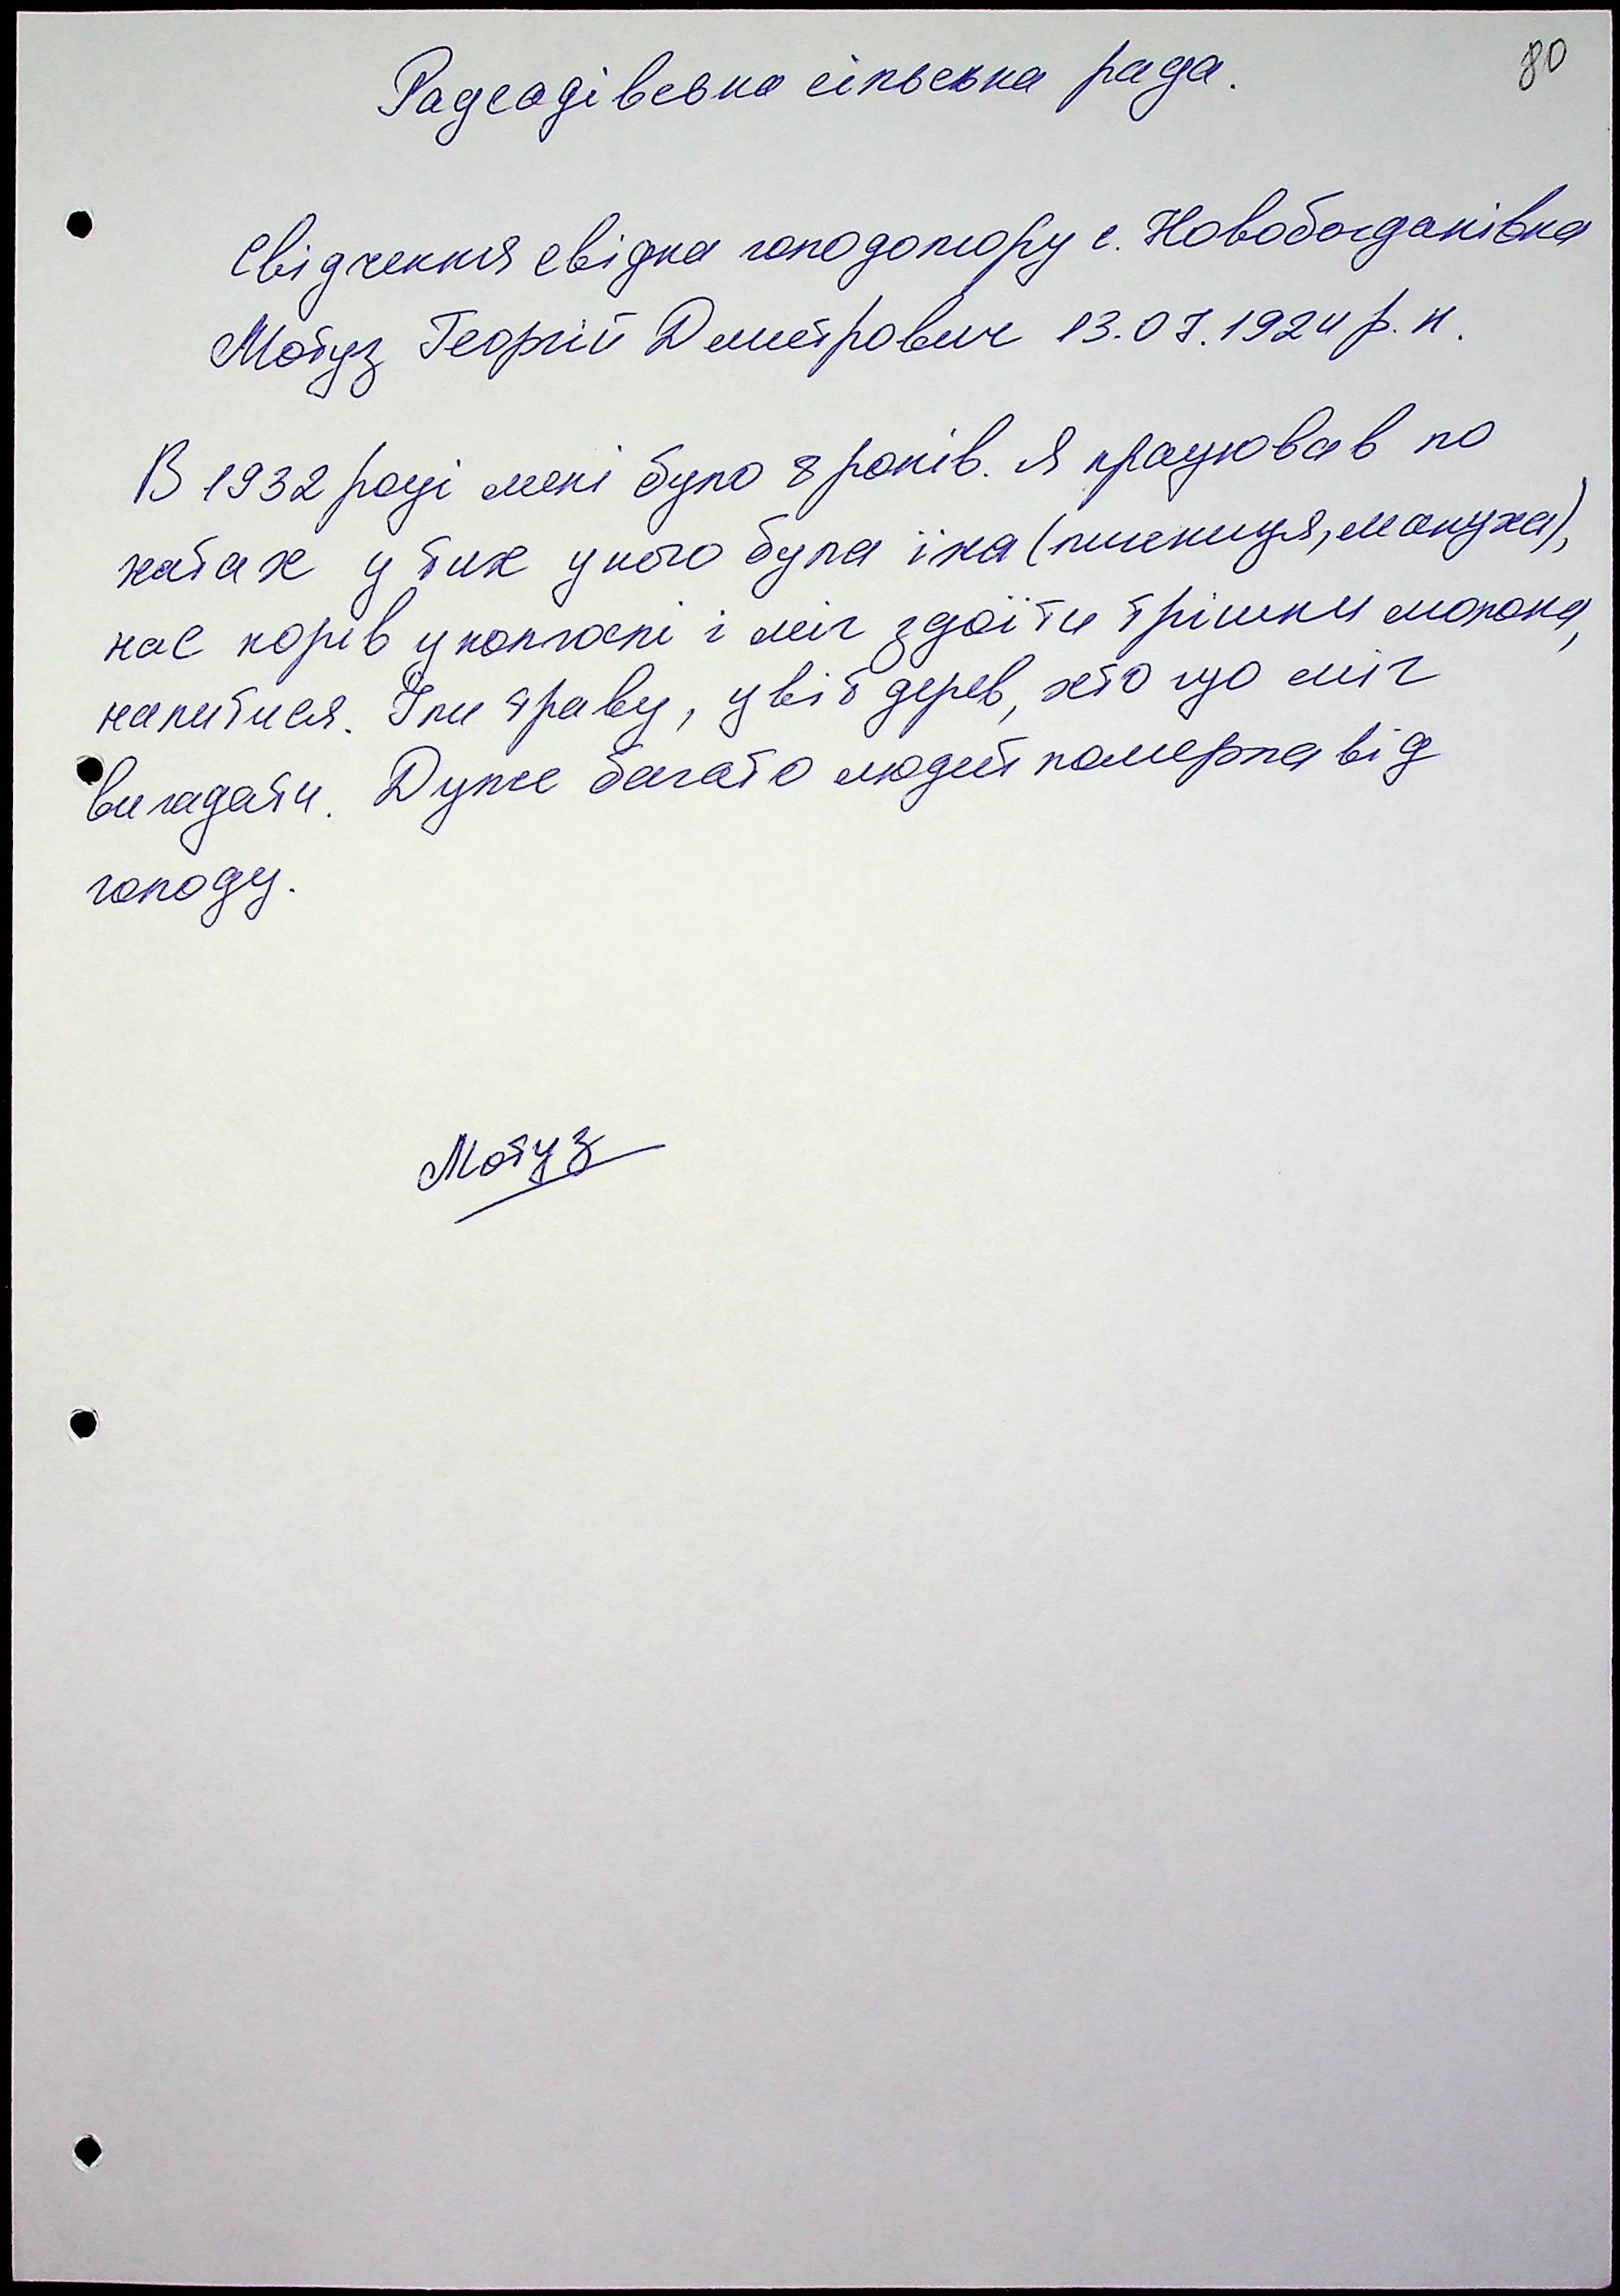 80
Радсадівська сільська рада.
Свідчення свідка голодомору с. Новобогданівка
Мотуз Георгій Дмитрович 13.07.1924 р. н.
В 1932 році мені було 8 років. Я працював по
хатах у тих у кого була їжа (пшениця, макуха),
пас корів у колгоспі і міг здоїти трішки молока,
напитися. Їли траву, цвіт дерев, хто що міг
вигадати. Дуже багато людей померла від
голоду.
Мотуз